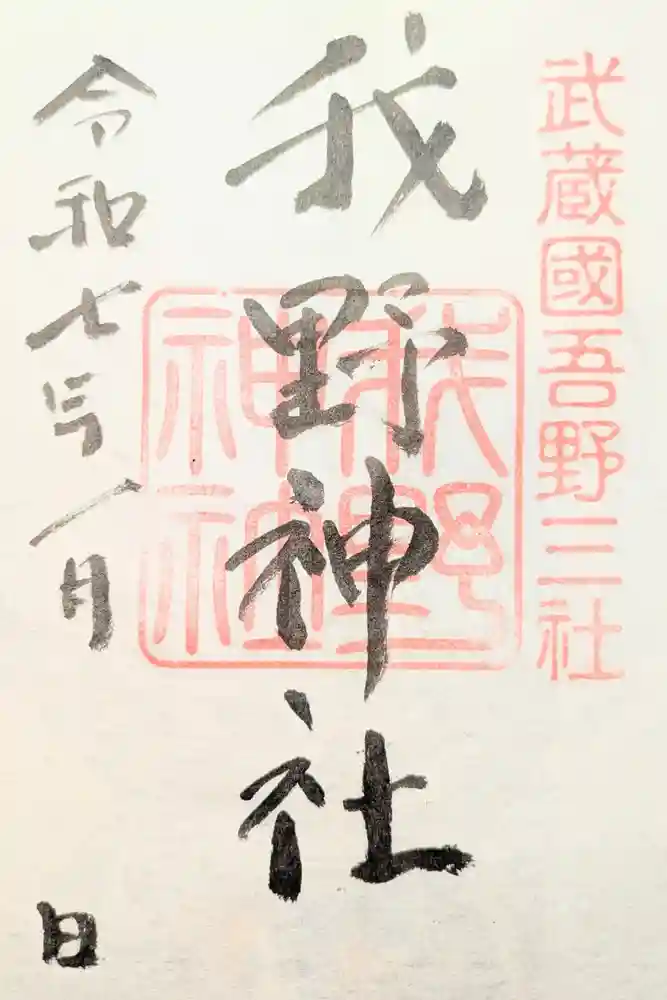 武蔵國吾野三社
我野神社
我野
神社
令和七年一月
日